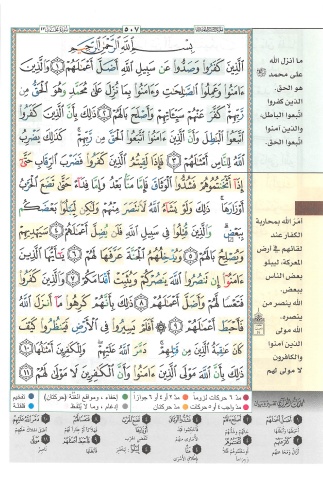 ٥٠٧
بِسْمِ ٱللَّهِ ٱلرَّحْمَٰنِ ٱلرَّحِيمِ
ٱلَّذِينَ كَفَرُوا۟ وَصَدُّوا۟ عَن سَبِيلِ ٱللَّهِ أَضَلَّ أَعْمَٰلَهُمْ ١ وَٱلَّذِينَ
ءَامَنُوا۟ وَعَمِلُوا۟ ٱلصَّٰلِحَٰتِ وَءَامَنُوا۟ بِمَا نُزِّلَ عَلَىٰ مُحَمَّدٍ وَهُوَ ٱلْحَقُّ مِن
رَّبِّهِمْ كَفَّرَ عَنْهُمْ سَيِّـَٔاتِهِمْ وَأَصْلَحَ بَالَهُمْ ٢ ذَٰلِكَ بِأَنَّ ٱلَّذِينَ كَفَرُوا۟
ٱتَّبَعُوا۟ ٱلْبَٰطِلَ وَأَنَّ ٱلَّذِينَ ءَامَنُوا۟ ٱتَّبَعُوا۟ ٱلْحَقَّ مِن رَّبِّهِمْ كَذَٰلِكَ يَضْرِبُ
ٱللَّهُ لِلنَّاسِ أَمْثَٰلَهُمْ ٣ فَإِذَا لَقِيتُمُ ٱلَّذِينَ كَفَرُوا۟ فَضَرْبَ ٱلرِّقَابِ حَتَّىٰٓ
إِذَآ أَثْخَنتُمُوهُمْ فَشُدُّوا۟ ٱلْوَثَاقَ فَإِمَّا مَنًّۢا بَعْدُ وَإِمَّا فِدَآءً حَتَّىٰ تَضَعَ ٱلْحَرْبُ
أَوْزَارَهَا ذَٰلِكَ وَلَوْ يَشَآءُ ٱللَّهُ لَٱنتَصَرَ مِنْهُمْ وَلَٰكِن لِّيَبْلُوَا۟ بَعْضَكُم
بِبَعْضٍ وَٱلَّذِينَ قُتِلُوا۟ فِى سَبِيلِ ٱللَّهِ فَلَن يُضِلَّ أَعْمَٰلَهُمْ ٤ سَيَهْدِيهِمْ
وَيُصْلِحُ بَالَهُمْ ٥ وَيُدْخِلُهُمُ ٱلْجَنَّةَ عَرَّفَهَا لَهُمْ ٦ يَٰٓأَيُّهَا ٱلَّذِينَ
ءَامَنُوٓا۟ إِن تَنصُرُوا۟ ٱللَّهَ يَنصُرْكُمْ وَيُثَبِّتْ أَقْدَامَكُمْ ٧ وَٱلَّذِينَ كَفَرُوا۟
فَتَعْسًا لَّهُمْ وَأَضَلَّ أَعْمَٰلَهُمْ ٨ ذَٰلِكَ بِأَنَّهُمْ كَرِهُوا۟ مَآ أَنزَلَ ٱللَّهُ
فَأَحْبَطَ أَعْمَٰلَهُمْ ٩ أَفَلَمْ يَسِيرُوا۟ فِى ٱلْأَرْضِ فَيَنظُرُوا۟ كَيْفَ
كَانَ عَٰقِبَةُ ٱلَّذِينَ مِن قَبْلِهِمْ دَمَّرَ ٱللَّهُ عَلَيْهِمْ وَلِلْكَٰفِرِينَ أَمْثَٰلُهَا ١٠
ذَٰلِكَ بِأَنَّ ٱللَّهَ مَوْلَى ٱلَّذِينَ ءَامَنُوا۟ وَأَنَّ ٱلْكَٰفِرِينَ لَا مَوْلَىٰ لَهُمْ ١١
ما انزل الله
على محمد ﷺ
هو الحق.
الذين كفروا
اتبعوا الباطل،
والذين امنوا
اتبعوا الحق.
أمر الله بمحاربة
الكفار عند
لقائهم في أرض
المعركة، ليبلو
بعض الناس
ببعض.
الله ينصر من
ينصره.
الله مولى
الذين امنوا
والكافرون
لا مولى لهم
مدّ ٦ حركات لزوماً
مدّ ٢ أو ٤ أو ٦ جوازاً
إخفاء، ومواقع الغُنَّة (حركتان)
تفخيم
مدّ واجب ٤ أو ٥ حركات
مدّ حركتان
إدغام، وما لا يُلفظ
قلقلة